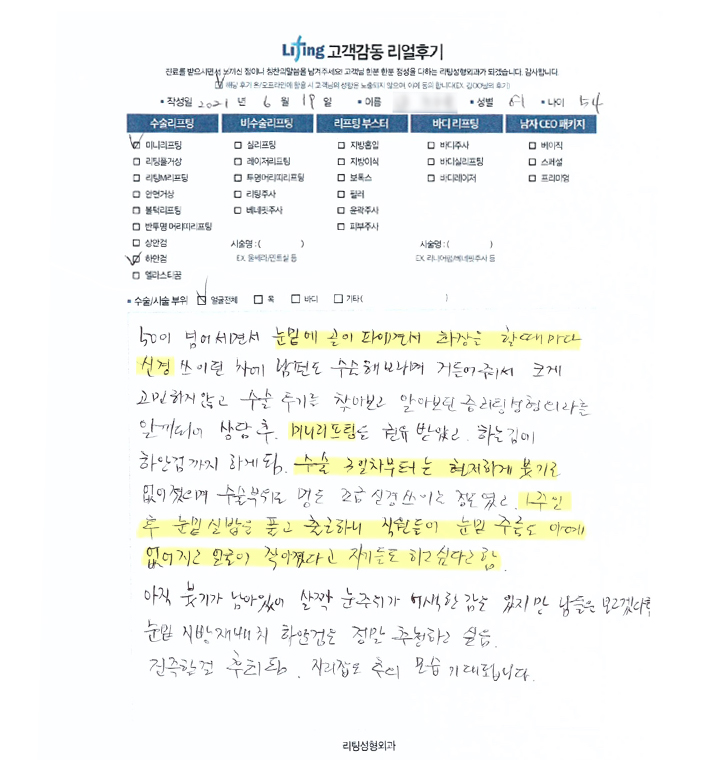 Lifting 고객감동 리얼후기
진료를 받으시면서 느끼신 점이나 칭찬의말씀을 남겨주세요! 고객님 한분 한분 정성을 다하는 리팅성형외과가 되겠습니다. 감사합니다.
해당 후기 온/오프라인에 활용 시 고객님의 성함은 노출되지 않으며, 이에 동의 합니다(EX. 김OO님의 후기)
• 작성일 2021 년 6 월 19 일 • 이름 • 성별 여 • 나이 54
수술리프팅 비수술리프팅 리프팅 부스터 바디 리프팅 남자 CEO 패키지
미니리프팅 실리프팅 지방흡입 바디주사 베이직
리팅풀거상 레이저리프팅 지방이식 바디실리프팅 스페셜
리팅M리프팅 투명머리띠리프팅 보톡스 바디레이저 프리미엄
안면거상 리팅주사 필러
볼턱리프팅 베네핏주사 윤곽주사
반투명 머리띠리프팅 피부주사
상안검 시술명 : ( ) 시술명 : ( )
하안검 EX. 울쎄라/민트실 등 EX. 리니어펌/베네핏주사 등
엘라스티꿈
• 수술/시술 부위 얼굴전체 목 바디 기타( )
50이 넘어서면서 눈밑에 골이 파이면서 화장을 할때마다
신경 쓰이던 차에 남편도 수술해보라며 거들어줘서 크게
고민하지않고 수술 후기를 찾아보고 알아보던 중 리팅성형외과를
알게되어 상담 후. 미니리프팅도 권유 받았고. 하는김에
하안검까지 하게됨. 수술 3일차부터는 현저하게 붓기도
없어졌으며 수술부위도 멍도 조금 신경쓰이는 정도였고. 1주일
후 눈밑 실밥을 풀고 출근하니 직원들이 눈밑 주름도 아예
없어지고 얼굴이 작아졌다고 자기들도 하고싶다고함.
아직 붓기가 남아있어 살짝 눈주위가 어색한 감은 있지만 남들은 모르겠다함
눈밑 지방재배치 하안검은 정말 추천하고 싶음.
진즉할걸 후회됨. 자리잡은 후의 모습 기대됩니다.
리팅성형외과